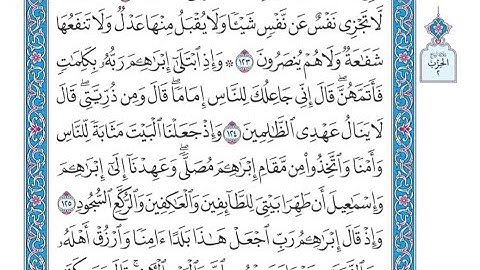 لَّا تَجْزِي نَفْسٌ عَن نَّفْسٍ شَيْـًٔا وَلَا يُقْبَلُ مِنْهَا عَدْلٌ وَلَا تَنفَعُهَا
شَفَـٰعَةٌ وَلَا هُمْ يُنصَرُونَ ١٢٣ ۞ وَإِذِ ٱبْتَلَىٰٓ إِبْرَٰهِـۧمَ رَبُّهُۥ بِكَلِمَـٰتٍ
فَأَتَمَّهُنَّ ۖ قَالَ إِنِّي جَاعِلُكَ لِلنَّاسِ إِمَامًا ۖ قَالَ وَمِن ذُرِّيَّتِي ۖ قَالَ
لَا يَنَالُ عَهْدِي ٱلظَّـٰلِمِينَ ١٢٤ وَإِذْ جَعَلْنَا ٱلْبَيْتَ مَثَابَةً لِّلنَّاسِ
وَأَمْنًا وَٱتَّخِذُوا۟ مِن مَّقَامِ إِبْرَٰهِـۧمَ مُصَلًّى ۖ وَعَهِدْنَآ إِلَىٰٓ إِبْرَٰهِـۧمَ
وَإِسْمَـٰعِيلَ أَن طَهِّرَا بَيْتِيَ لِلطَّآئِفِينَ وَٱلْعَـٰكِفِينَ وَٱلرُّكَّعِ ٱلسُّجُودِ ١٢٥
وَإِذْ قَالَ إِبْرَٰهِـۧمُ رَبِّ ٱجْعَلْ هَـٰذَا بَلَدًا ءَامِنًا وَٱرْزُقْ أَهْلَهُۥ
الحزب
٢